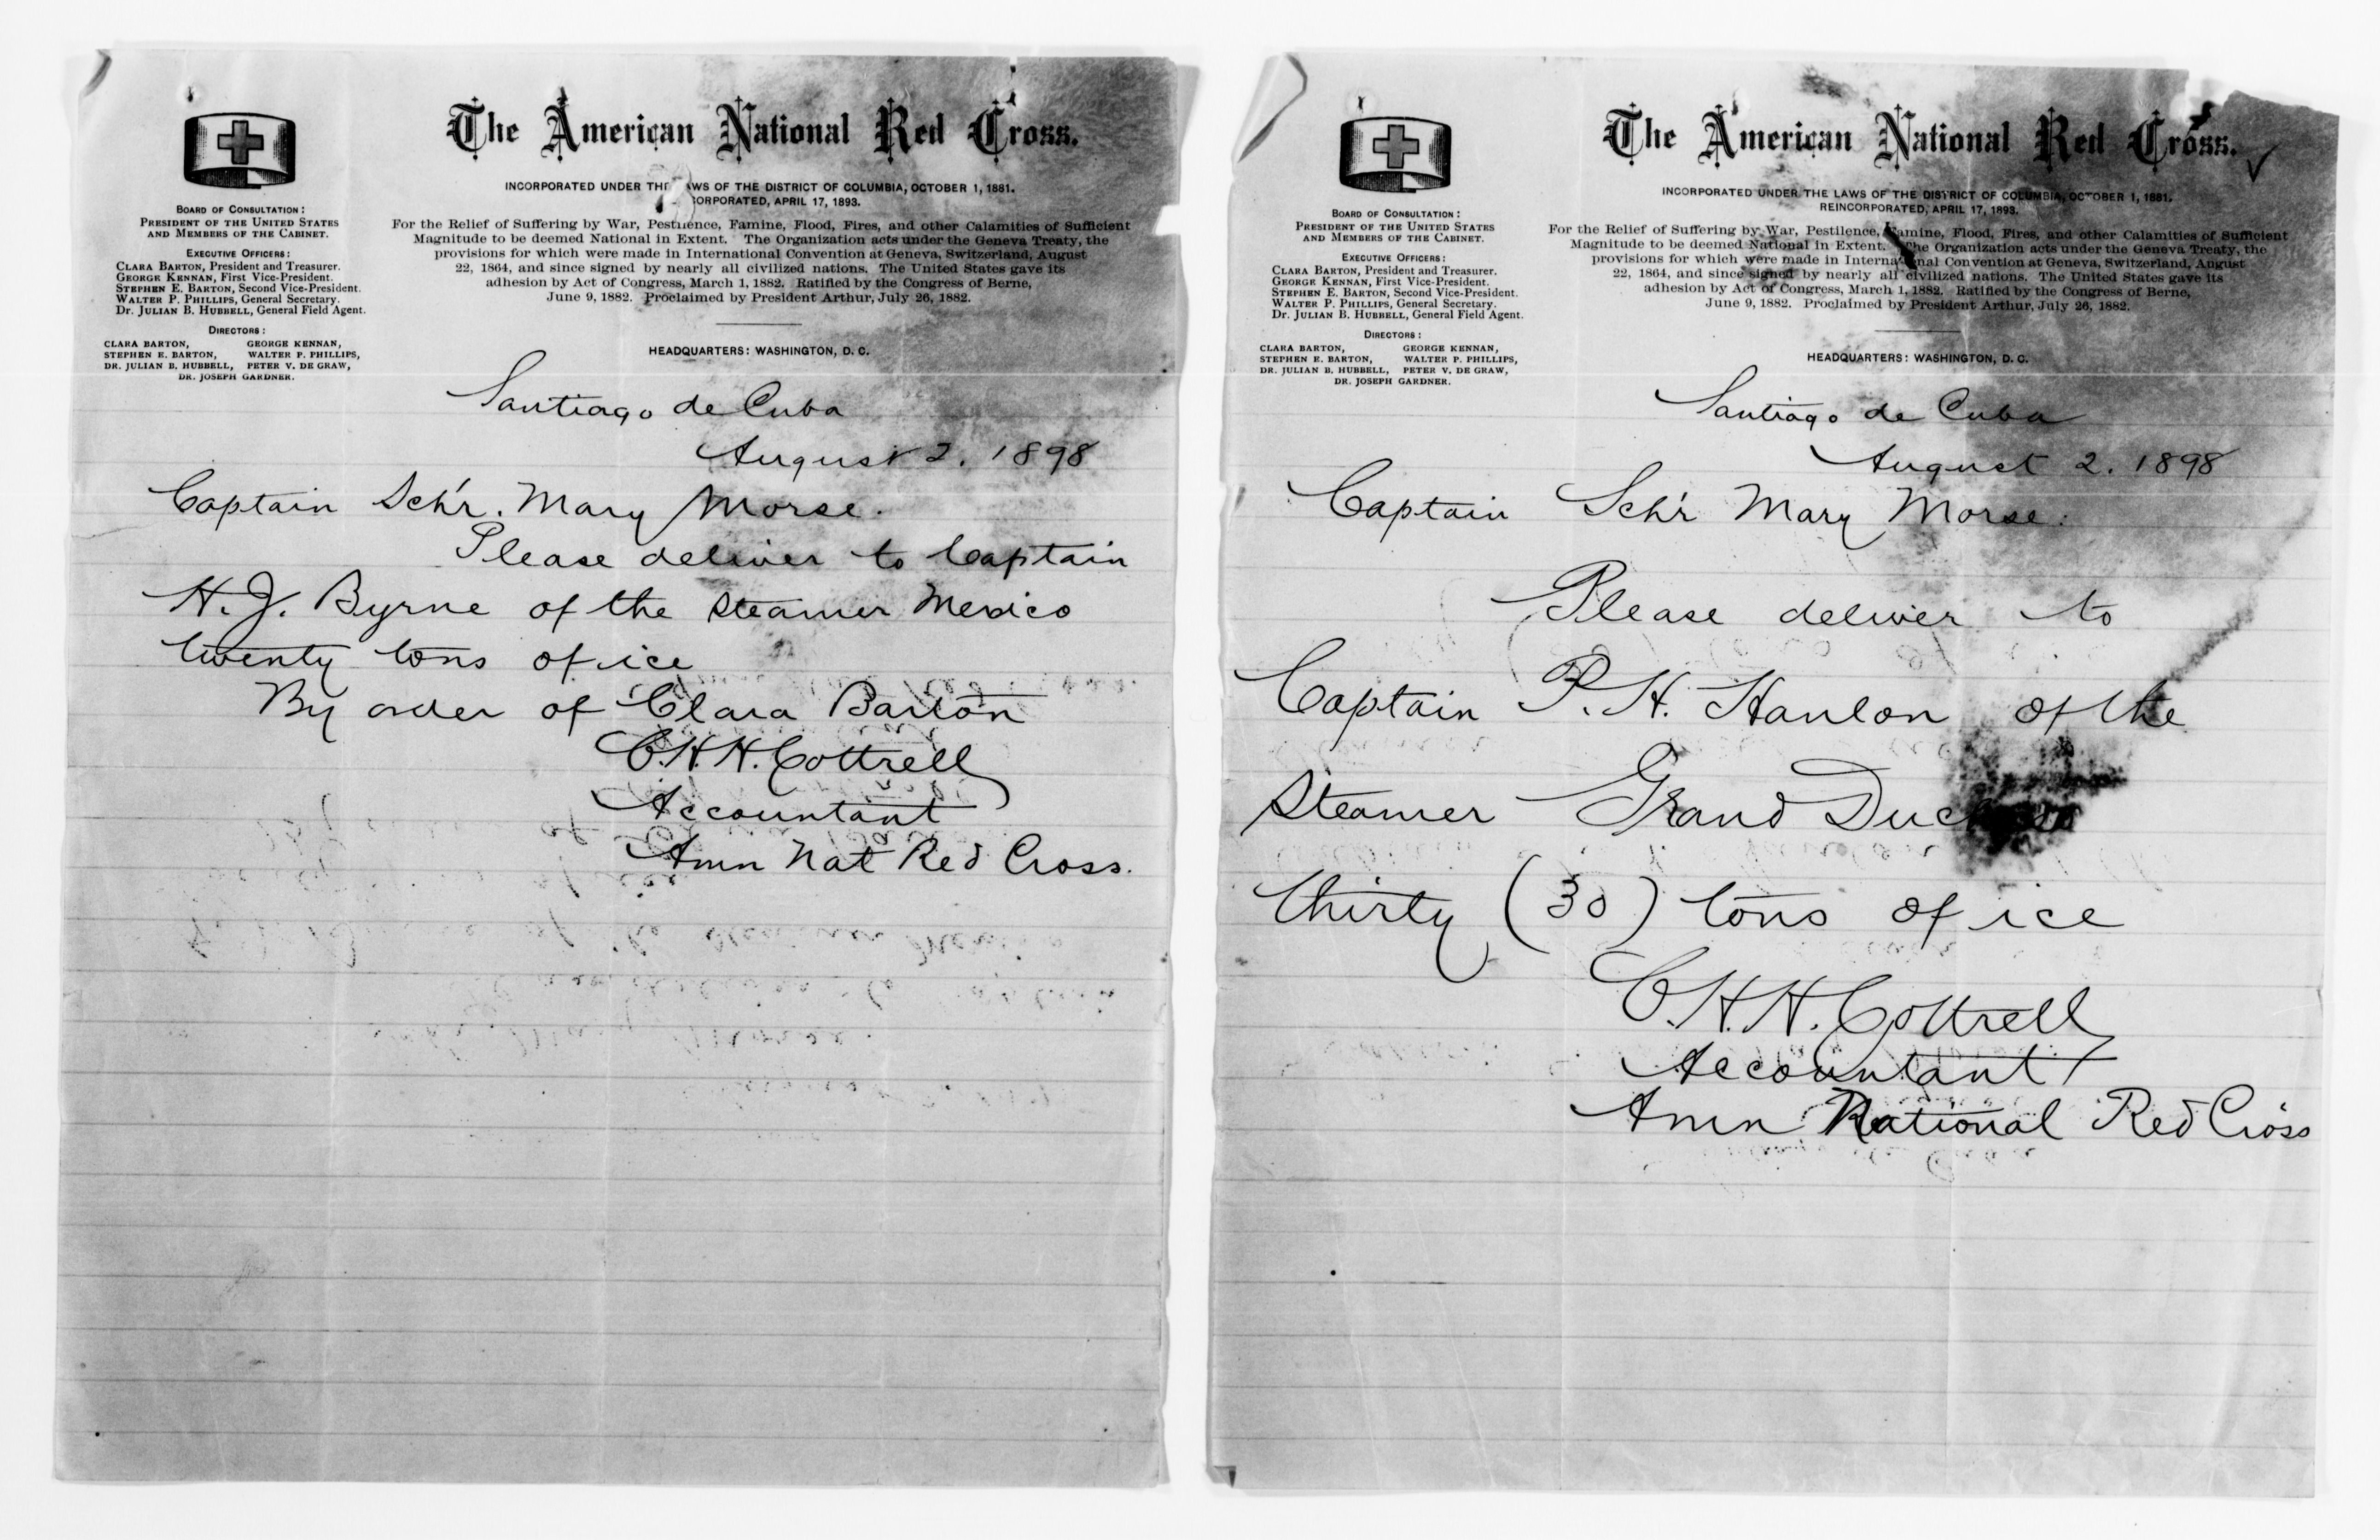 The American National Red Cross.
INCORPORATED UNDER THE LAWS OF THE DISTRICT OF COLUMBIA, OCTOBER 1, 1881.
CORPORATED, APRIL 17, 1893.
For the Relief of Suffering by War, Pestilence, Famine, Flood, Fires, and other Calamities of Sufficient
Magnitude to be deemed National in Extent. The Organization acts under the Geneva Treaty, the
provisions for which were made in International Convention at Geneva, Switzerland, August
22, 1864, and since signed by nearly all civilized nations. The United States gave its
adhesion by Act of Congress, March 1, 1882. Ratified by the Congress of Berne,
June 9, 1882. Proclaimed by President Arthur, July 26, 1882.
HEADQUARTERS: WASHINGTON, D. C.
BOARD OF CONSULTATION:
PRESIDENT OF THE UNITED STATES
AND MEMBERS OF THE CABINET.
EXECUTIVE OFFICERS:
CLARA BARTON, President and Treasurer.
GEORGE KENNAN, First Vice-President.
STEPHEN E. BARTON, Second Vice-President.
WALTER P. PHILLIPS, General Secretary.
Dr. JULIAN B. HUBBELL, General Field Agent.
DIRECTORS:
CLARA BARTON, GEORGE KENNAN,
STEPHEN E. BARTON, WALTER P. PHILLIPS,
DR. JULIAN B. HUBBELL, PETER V. DE GRAW,
DR. JOSEPH GARDNER.
Santiago de Cuba
August 2. 1898
Captain Sch'r. Mary Morse.
Please deliver to Captain
H. J. Byrne of the steamer Mexico
twenty tons of ice
By order of Clara Barton
C. H. H. Cottrell
Accountant
Amn Nat Red Cross.
The American National Red Cross.
INCORPORATED UNDER THE LAWS OF THE DISTRICT OF COLUMBIA, OCTOBER 1, 1881.
REINCORPORATED, APRIL 17, 1893.
For the Relief of Suffering by War, Pestilence, Famine, Flood, Fires, and other Calamities of Sufficient
Magnitude to be deemed National in Extent. The Organization acts under the Geneva Treaty, the
provisions for which were made in International Convention at Geneva, Switzerland, August
22, 1864, and since signed by nearly all civilized nations. The United States gave its
adhesion by Act of Congress, March 1, 1882. Ratified by the Congress of Berne,
June 9, 1882. Proclaimed by President Arthur, July 26, 1882.
HEADQUARTERS: WASHINGTON, D. C.
BOARD OF CONSULTATION:
PRESIDENT OF THE UNITED STATES
AND MEMBERS OF THE CABINET.
EXECUTIVE OFFICERS:
CLARA BARTON, President and Treasurer.
GEORGE KENNAN, First Vice-President.
STEPHEN E. BARTON, Second Vice-President.
WALTER P. PHILLIPS, General Secretary.
Dr. JULIAN B. HUBBELL, General Field Agent.
DIRECTORS:
CLARA BARTON, GEORGE KENNAN,
STEPHEN E. BARTON, WALTER P. PHILLIPS,
DR. JULIAN B. HUBBELL, PETER V. DE GRAW,
DR. JOSEPH GARDNER.
Santiago de Cuba
August 2. 1898
Captain Sch'r Mary Morse.
Please deliver to
Captain P. H. Hanlon of the
Steamer Grand Duchess
thirty (30) tons of ice
C. H. H. Cottrell
Accountant
Amn National Red Cross